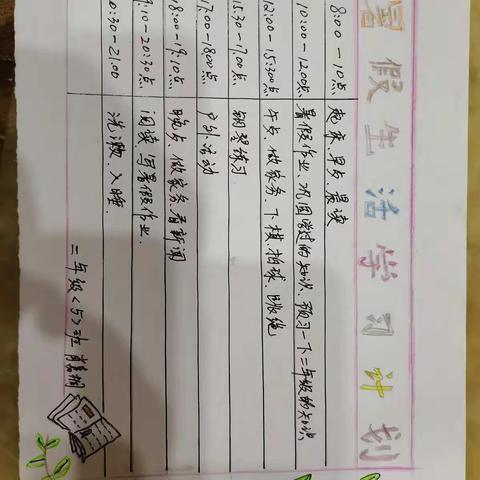 暑假生活学习计划
8:00-10点 起来、早点、晨读
10:00-12:00点 暑假作业、巩固学过的知识、预习一下二年级的知识
12:00-15:300点 午点、做家务、下棋、拍球、跳绳
15:30-17:00点 钢琴练习
17:00-1800点 户外活动
18:00-19:10点 晚点、做家务、看新闻
19:10-20:30点 阅读、写暑假作业.
20:30-21:00 洗漱、入睡.
二年级<5>班